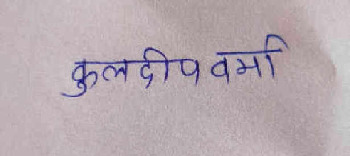 कुलदीप वर्मा